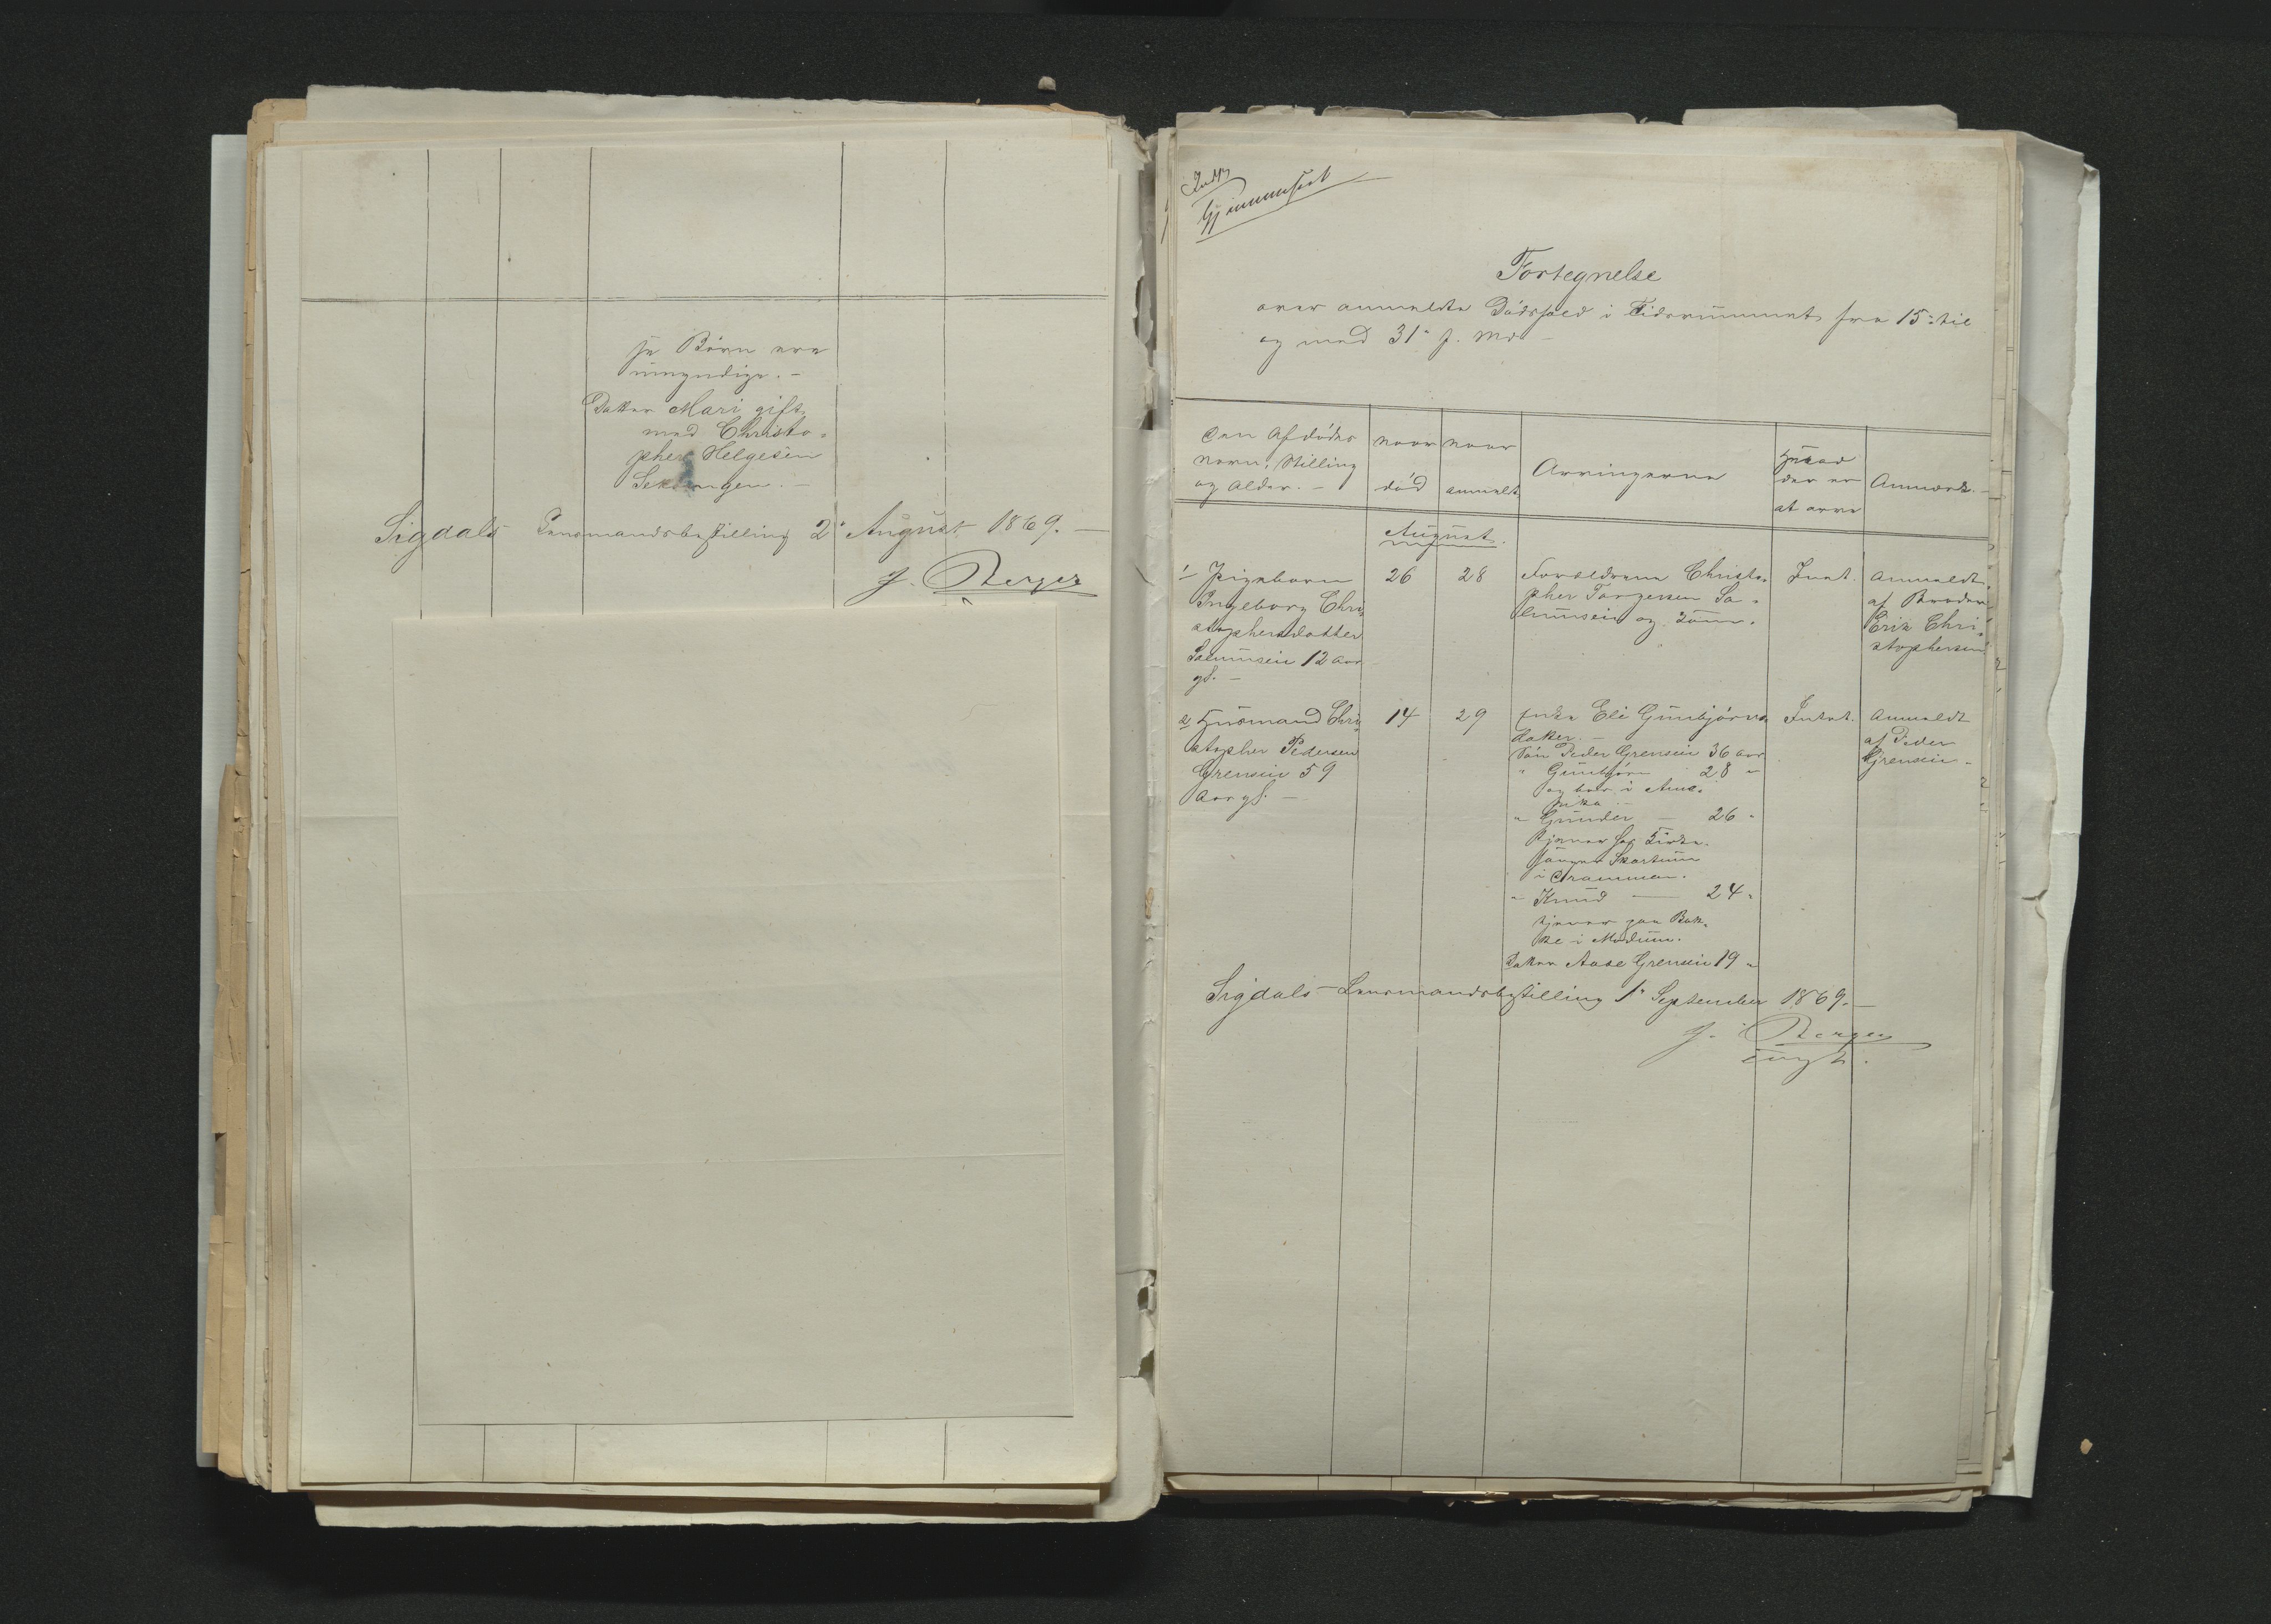 je Børn ere
umyndige. –
Datter Mari gift
med Christo-
pher Helgesen
Sigdals Lensmandsbestilling 2' August 1869. –
J. Berger
Gjennemseet
Fortegnelse
over anmeldte Dødsfald i Tidsrummet fra 15' til
og med 31' f. Md –
Den Afdødes
Navn, Stilling
og Alder. –
naar
død
naar
anmeldt
Arvingerne
Hvad
der er
at arve
Anmærk. –
August.
1 Pigebarn
Ingeborg Chri-
stophersdatter
12 Aar
gl. –
26
28
Forældrene Christo-
pher Torgersen
og Søm.
Intet.
Anmeldt
af Broder
Erik Chri-
stophersen
2 Husmand Chri-
stopher Pedersen
Grensein 59
Aar gl. –
14
29
Enke Eli Gunbjørns-
datter. –
Søn Peder Grensein 36 Aar
" Gunbjørn 28 "
og bor i Ame-
rika. –
" Gunder – 26 "
tjener hos
i Drammen.
" Knud — 24 "
tjener paa Bak-
ke i Modum.
Datter Aase Grensein 19 "
Intet.
Anmeldt
af Peder
Grensein –
Sigdals – Lensmandsbestilling 1' September 1869. –
J. Berger